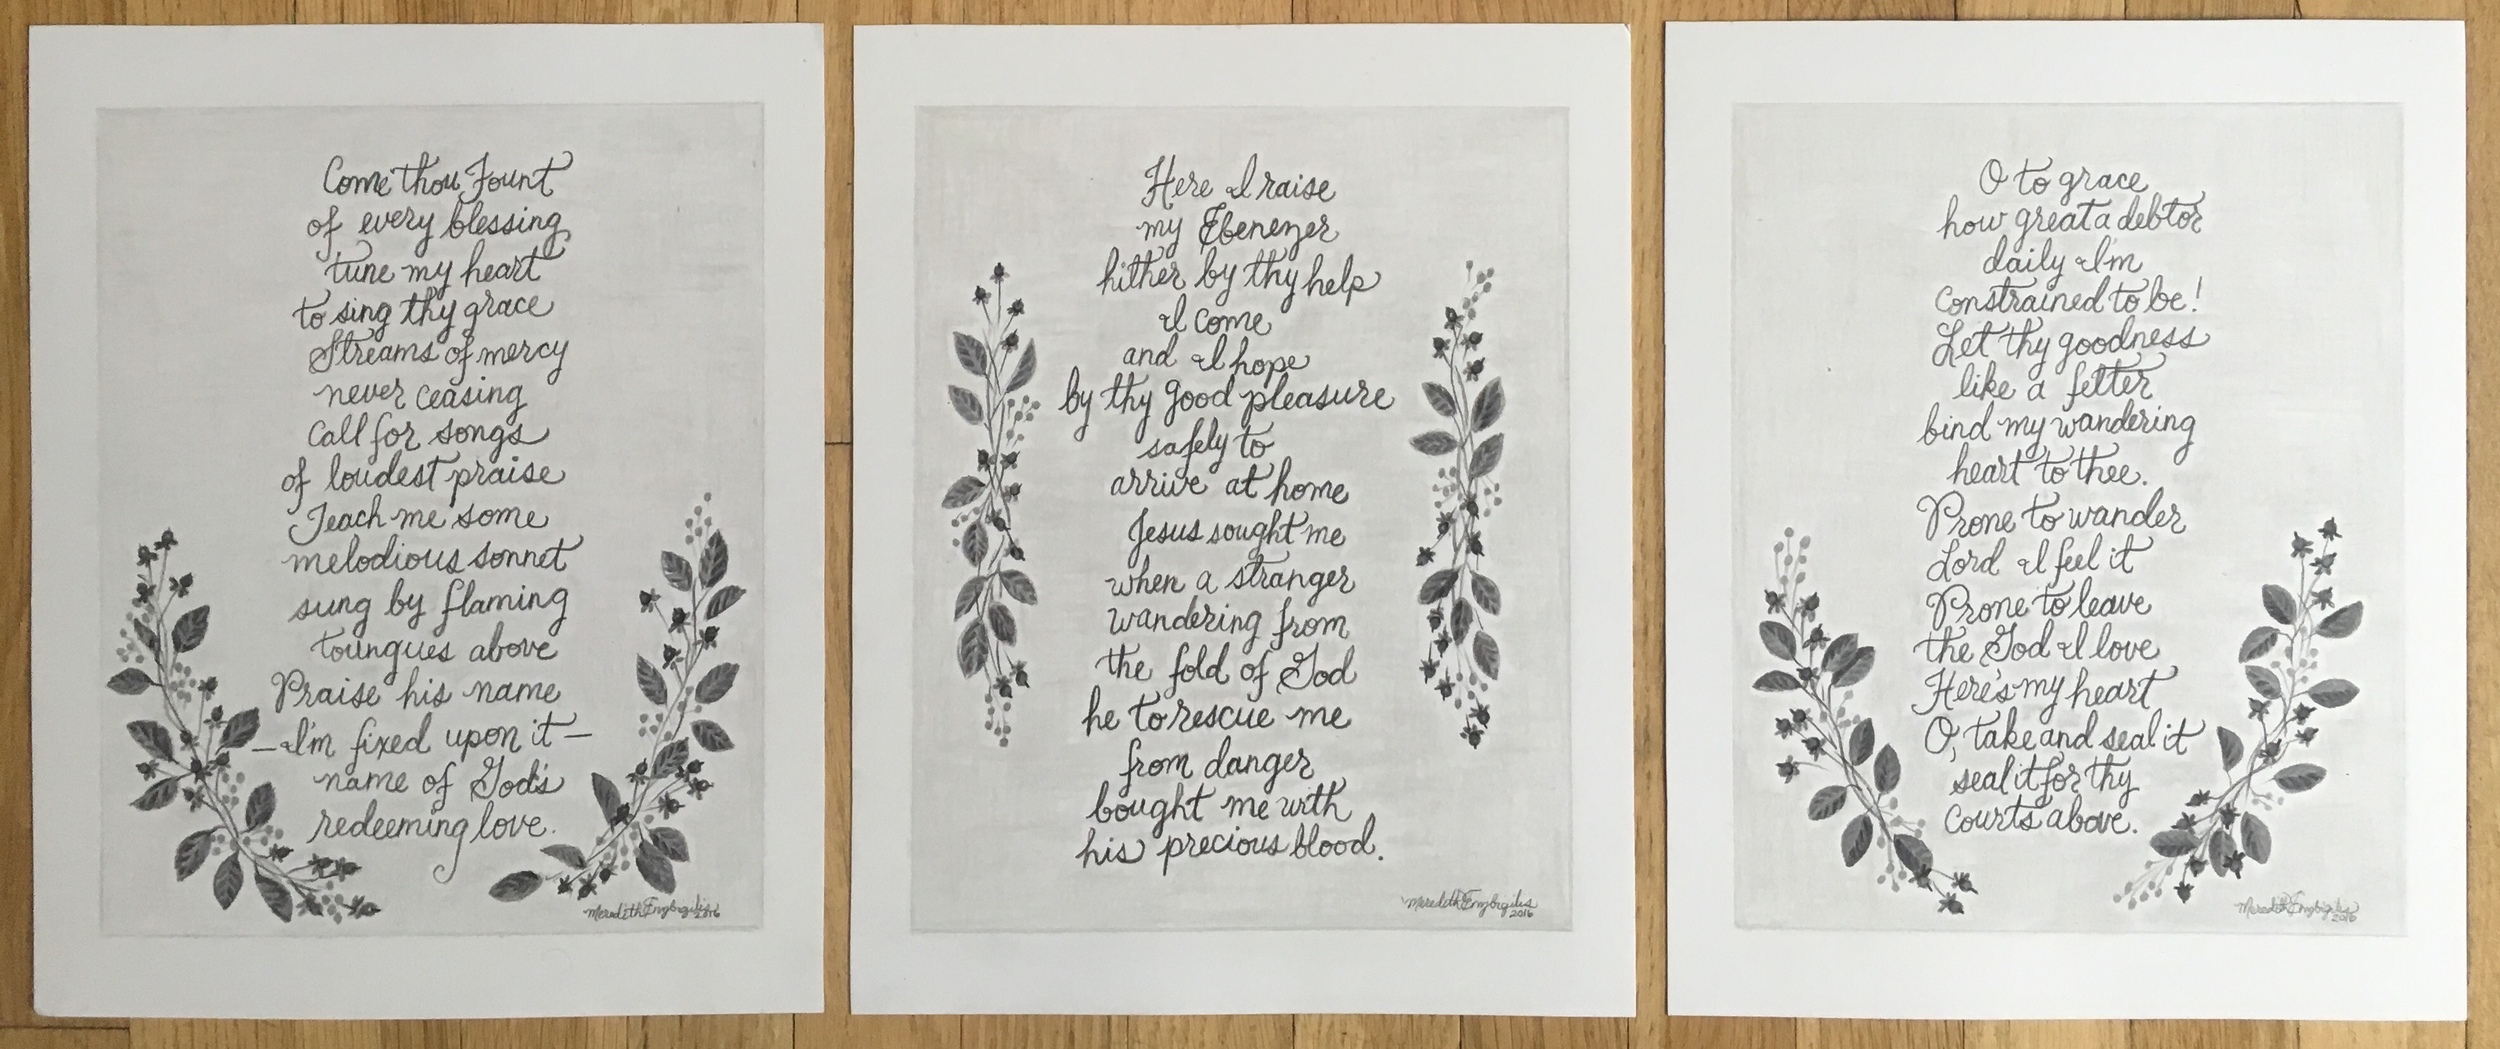 Come thou Fount
of every blessing
tune my heart
to sing thy grace
Streams of mercy
never ceasing
Call for songs
of loudest praise
Teach me some
melodious sonnet
sung by flaming
toungues above
Praise his name
—I'm fixed upon it—
name of God's
redeeming love.
Meredith
2016
Here I raise
my Ebenezer
hither by thy help
I come
and I hope
by thy good pleasure
safely to
arrive at home
Jesus sought me
when a stranger
wandering from
the fold of God
he to rescue me
from danger
bought me with
his precious blood.
Meredith
2016
O to grace
how great a debtor
daily I'm
constrained to be!
Let thy goodness
like a fetter
bind my wandering
heart to thee.
Prone to wander
Lord I feel it
Prone to leave
the God I love
Here's my heart
O, take and seal it
seal it for thy
Courts above.
Meredith
2016